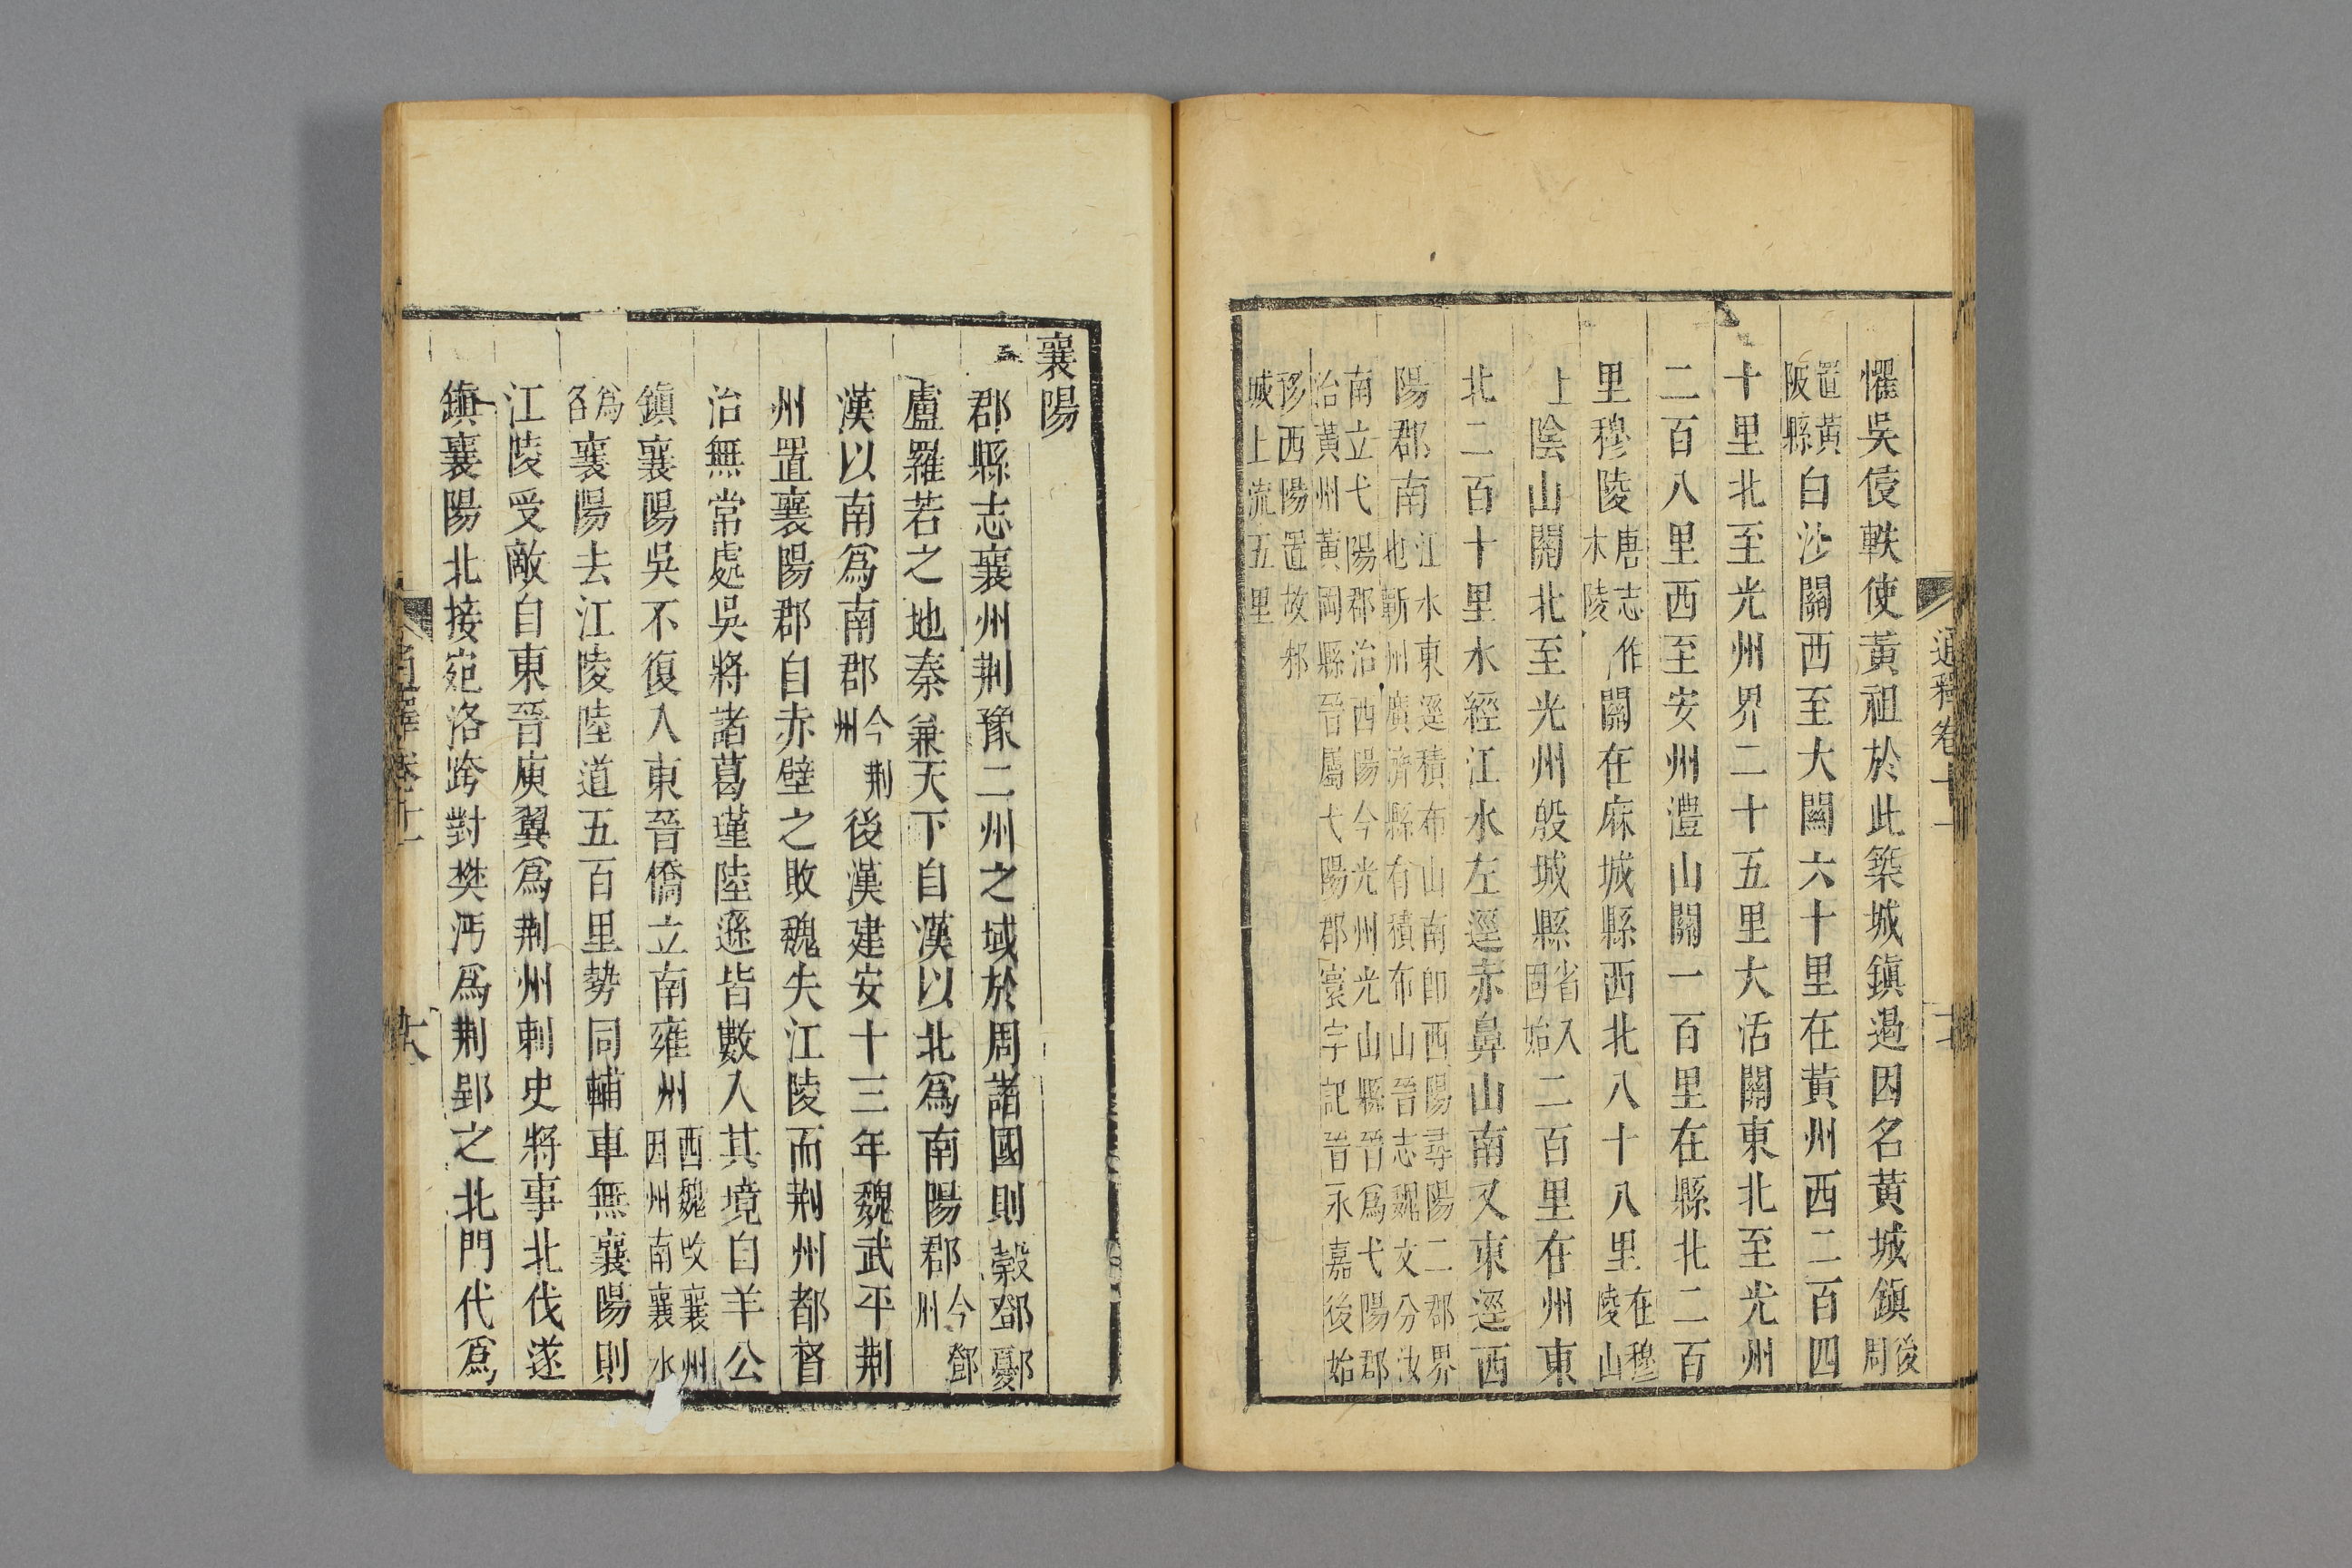 懼吳侵軼使黃祖於此築城鎮遏因名黃城鎮後周
置黃陂縣白沙關西至大關六十里在黃州西二百四
十里北至光州界二十五里大活關東北至光州
二百八里西至安州澧山關一百里在縣北二百
里穆陵唐志作木陵關在麻城縣西北八十八里在穆陵山
上陰山關北至光州殷城縣省入固始二百里在州東
北二百十里水經江水左逕赤鼻山南又東逕西
陽郡南江水東逕積布山南卽西陽尋陽二郡界也蘄州廣濟縣有積布山晉志魏文分汝
南立弋陽郡治西陽今光州光山縣晉爲弋陽郡治黃州黃岡縣晉屬弋陽郡寰宇記晉永嘉後始
移西陽置故邾城上流五里
通釋卷十一
襄陽
郡縣志襄州荆豫二州之域於周諸國則榖鄧鄾
盧羅若之地秦兼天下自漢以北爲南陽郡今鄧州
漢以南爲南郡今荆州後漢建安十三年魏武平荆
州置襄陽郡自赤壁之敗魏失江陵而荆州都督
治無常處吳將諸葛瑾陸遜皆數入其境自羊公
鎮襄陽吳不復入東晉僑立南雍州西魏改襄州因州南襄水
爲名襄陽去江陵陸道五百里勢同輔車無襄陽則
江陵受敵自東晉庾翼爲荆州刺史將事北伐遂
鎮襄陽北接宛洛跨對樊沔爲荆郢之北門代爲
通釋卷十一
大